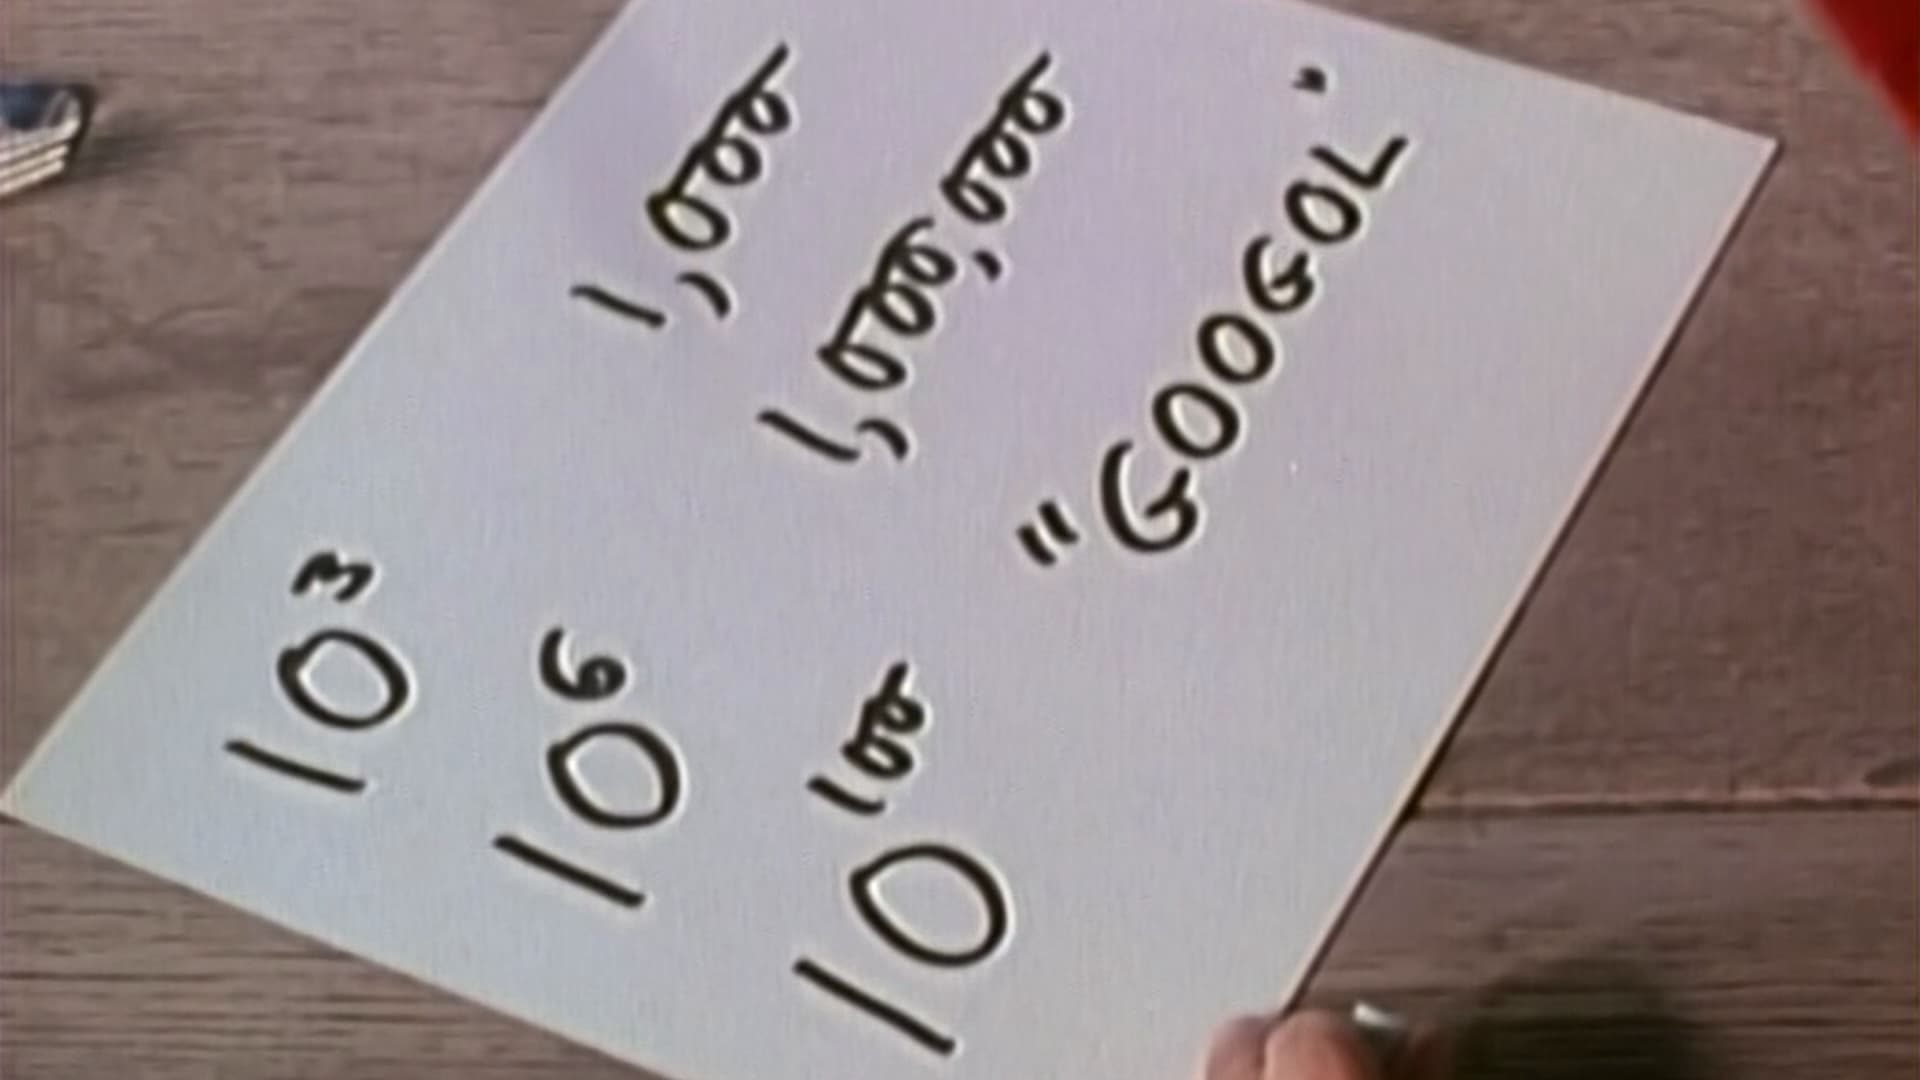 10³ 1,000
10⁶ 1,000,000
10¹⁰⁰ "GOOGOL"